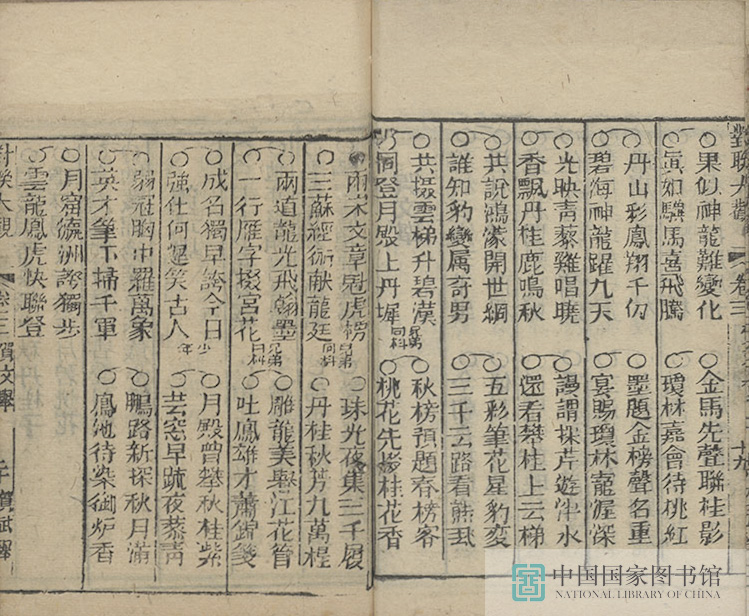 對聯大觀 卷三 十九
果似神龍難變化 金馬先聲聯桂影
眞如驥馬喜飛騰 瓊林嘉會待桃紅
丹山彩鳳翔千仞 墨題金榜聲名重
碧海神龍躍九天 宴賜瓊林寵渥深
光映靑藜雞唱曉 謾謂採芹遊泮水
香飄丹桂鹿鳴秋 還看攀桂上云梯
共説鴻濛開世網 五彩筆花星豹变
誰知豹變属奇男 三千云路看熊
共攝雲梯升碧漢 秋榜預題春榜客
同登月殿上丹墀 兄弟同科 桃花先桂花香
兩宋文章剋虎榜 兄弟 珠光夜集三千履
三蘇經術献龍廷 同科 丹桂秋芳九萬程
兩道龍光飛翰墨 雕龍美舉江花管
一行雁字掇宮花 兄弟同科 吐鳳雄才蕭錦箋
成名獨早誇今日 月殿曾攀秋桂紫
強仕何遲笑古人 少年 芸窓早䟽夜藜靑
弱冠胸中羅萬象 鵬路新探秋月滿
英才筆下掃千軍 鳳池待染御炉香
月窟瀛洲誇獨步
雲龍鳳虎快聯登
對聯大觀 卷三 賀文舉 賀武舉
中国国家图书馆
NATIONAL LIBRARY OF CHINA